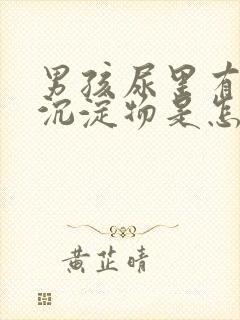 男孩尿里有
沉淀物是怎
黄芷晴